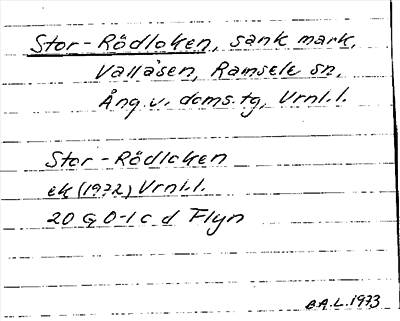 Stor-Rödloken, sank mark,
Vallåsen, Ramsele sn,
Ång. v. doms.tg, Vrnl.l.
Stor-Rödloken
ek (1972) Vrnl.l.
20 G 0-1 c d Flyn
B.A.L. 1973